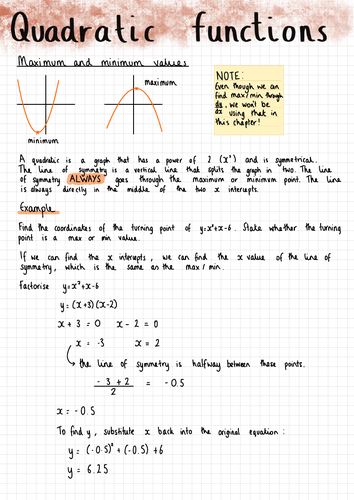 Quadratic functions
Maximum and minimum values
maximum
minimum
NOTE:
Even though we can
find max/min through
dy/dx, we won't be
using that in
this chapter!
A quadratic is a graph that has a power of 2 (x²) and is symmetrical.
The line of symmetry is a vertical line that splits the graph in two. The line
of symmetry ALWAYS goes through the maximum or minimum point. The line
is always directly in the middle of the two x intercepts.
Example
Find the coordinates of the turning point of y=x²+x-6. State whether the turning
point is a max or min value.
If we can find the x intercepts, we can find the x value of the line of
symmetry, which is the same as the max/min.
Factorise y=x²+x-6
y=(x+3)(x-2)
x+3=0 x-2=0
x = -3 x = 2
the line of symmetry is halfway between these points.
-3+2
2
= -0.5
x = -0.5
To find y, substitute x back into the original equation:
y = (-0.5)² + (-0.5) + 6
y = 6.25